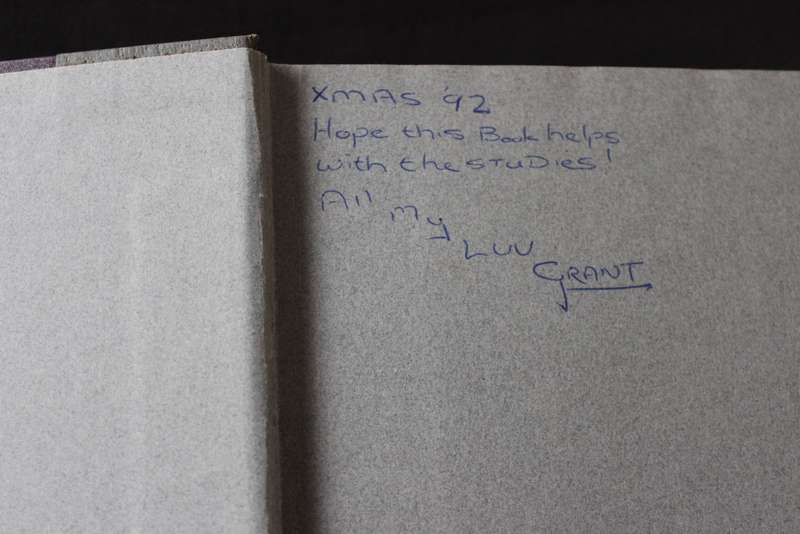 XMAS '92
Hope this Book helps
with the STUDIES!
All My Luv
GRANT